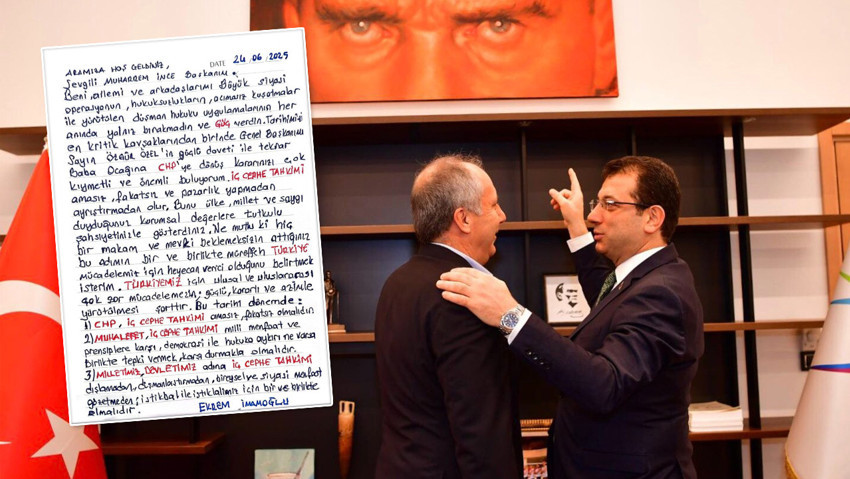 DATE 24/06/2025
ARAMIZA HOŞ GELDİNİZ,
Sevgili MUHARREM İNCE Başkanım.
Beni, ailemi ve arkadaşlarımı Büyük siyasi
operasyonun, hukuksuzlukların, acımasız kuşatmalar
ile yürütülen düşman hukuku uygulamalarının her
anında yalnız bırakmadın ve GÜÇ verdin. Tarihimizin
en kritik kavşaklarından birinde Genel Başkanımız
Sayın ÖZGÜR ÖZEL'in güçlü daveti ile tekrar
Baba Ocağına CHP'ye dönüş kararınızı çok
kıymetli ve önemli buluyorum. İÇ CEPHE TAHKİMİ
amasız, fakatsız ve pazarlık yapmadan
ayrıştırmadan olur. Bunu ülke, millet ve saygı
duyduğunuz kurumsal değerlere tutkulu
şahsiyetinizle gösterdiniz. Ne mutlu ki hiç
bir makam ve mevki beklemeksizin attığınız
bu adımın bir ve birlikte müreffeh TÜRKİYE
mücadelemiz için heyecan verici olduğunu belirtmek
isterim. TÜRKİYEMİZ için ulusal ve uluslararası
çok zor mücadelemizin; güçlü, kararlı ve azimle
yürütülmesi şarttır. Bu tarihi dönemde:
1) CHP, İÇ CEPHE TAHKİMİ amasız, fakatsız olmalıdır.
2) MUHALEFET, İÇ CEPHE TAHKİMİ milli menfaat ve
prensiplere karşı, demokrasi ile hukuka aykırı ne varsa
birlikte tepki vermek, karşı durmakla olmalıdır.
3) MİLLETİMİZ, DEVLETİMİZ adına İÇ CEPHE TAHKİMİ
dışlamadan, düşmanlaştırmadan, bireysel ve siyasi menfaat
gözetmeden; istikbal ile istiklalimiz için bir ve birlikte
olmalıdır.
EKREM İMAMOĞLU